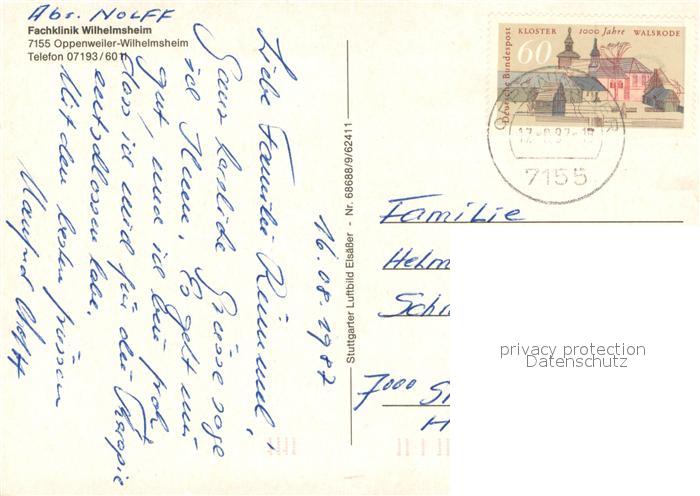 Abs. NOLFF
Fachklinik Wilhelmsheim
7155 Oppenweiler-Wilhelmsheim
Telefon 07193/60
16.08.1987
Liebe Familie
Ganz herzliche Grüsse sage
ich Ihnen. Es geht mir
gut, und ich bin froh,
dass ich mich für die Therapie
entschlossen habe.
Mit den besten Grüssen
Manfred Nolff
Stuttgarter Luftbild Elsäßer - Nr. 68688/9/62411
Deutsche Bundespost
KLOSTER 1000 Jahre WALSRODE
60
7155
Familie
Helm
Sch
7000 S
H
privacy protection
Datenschutz